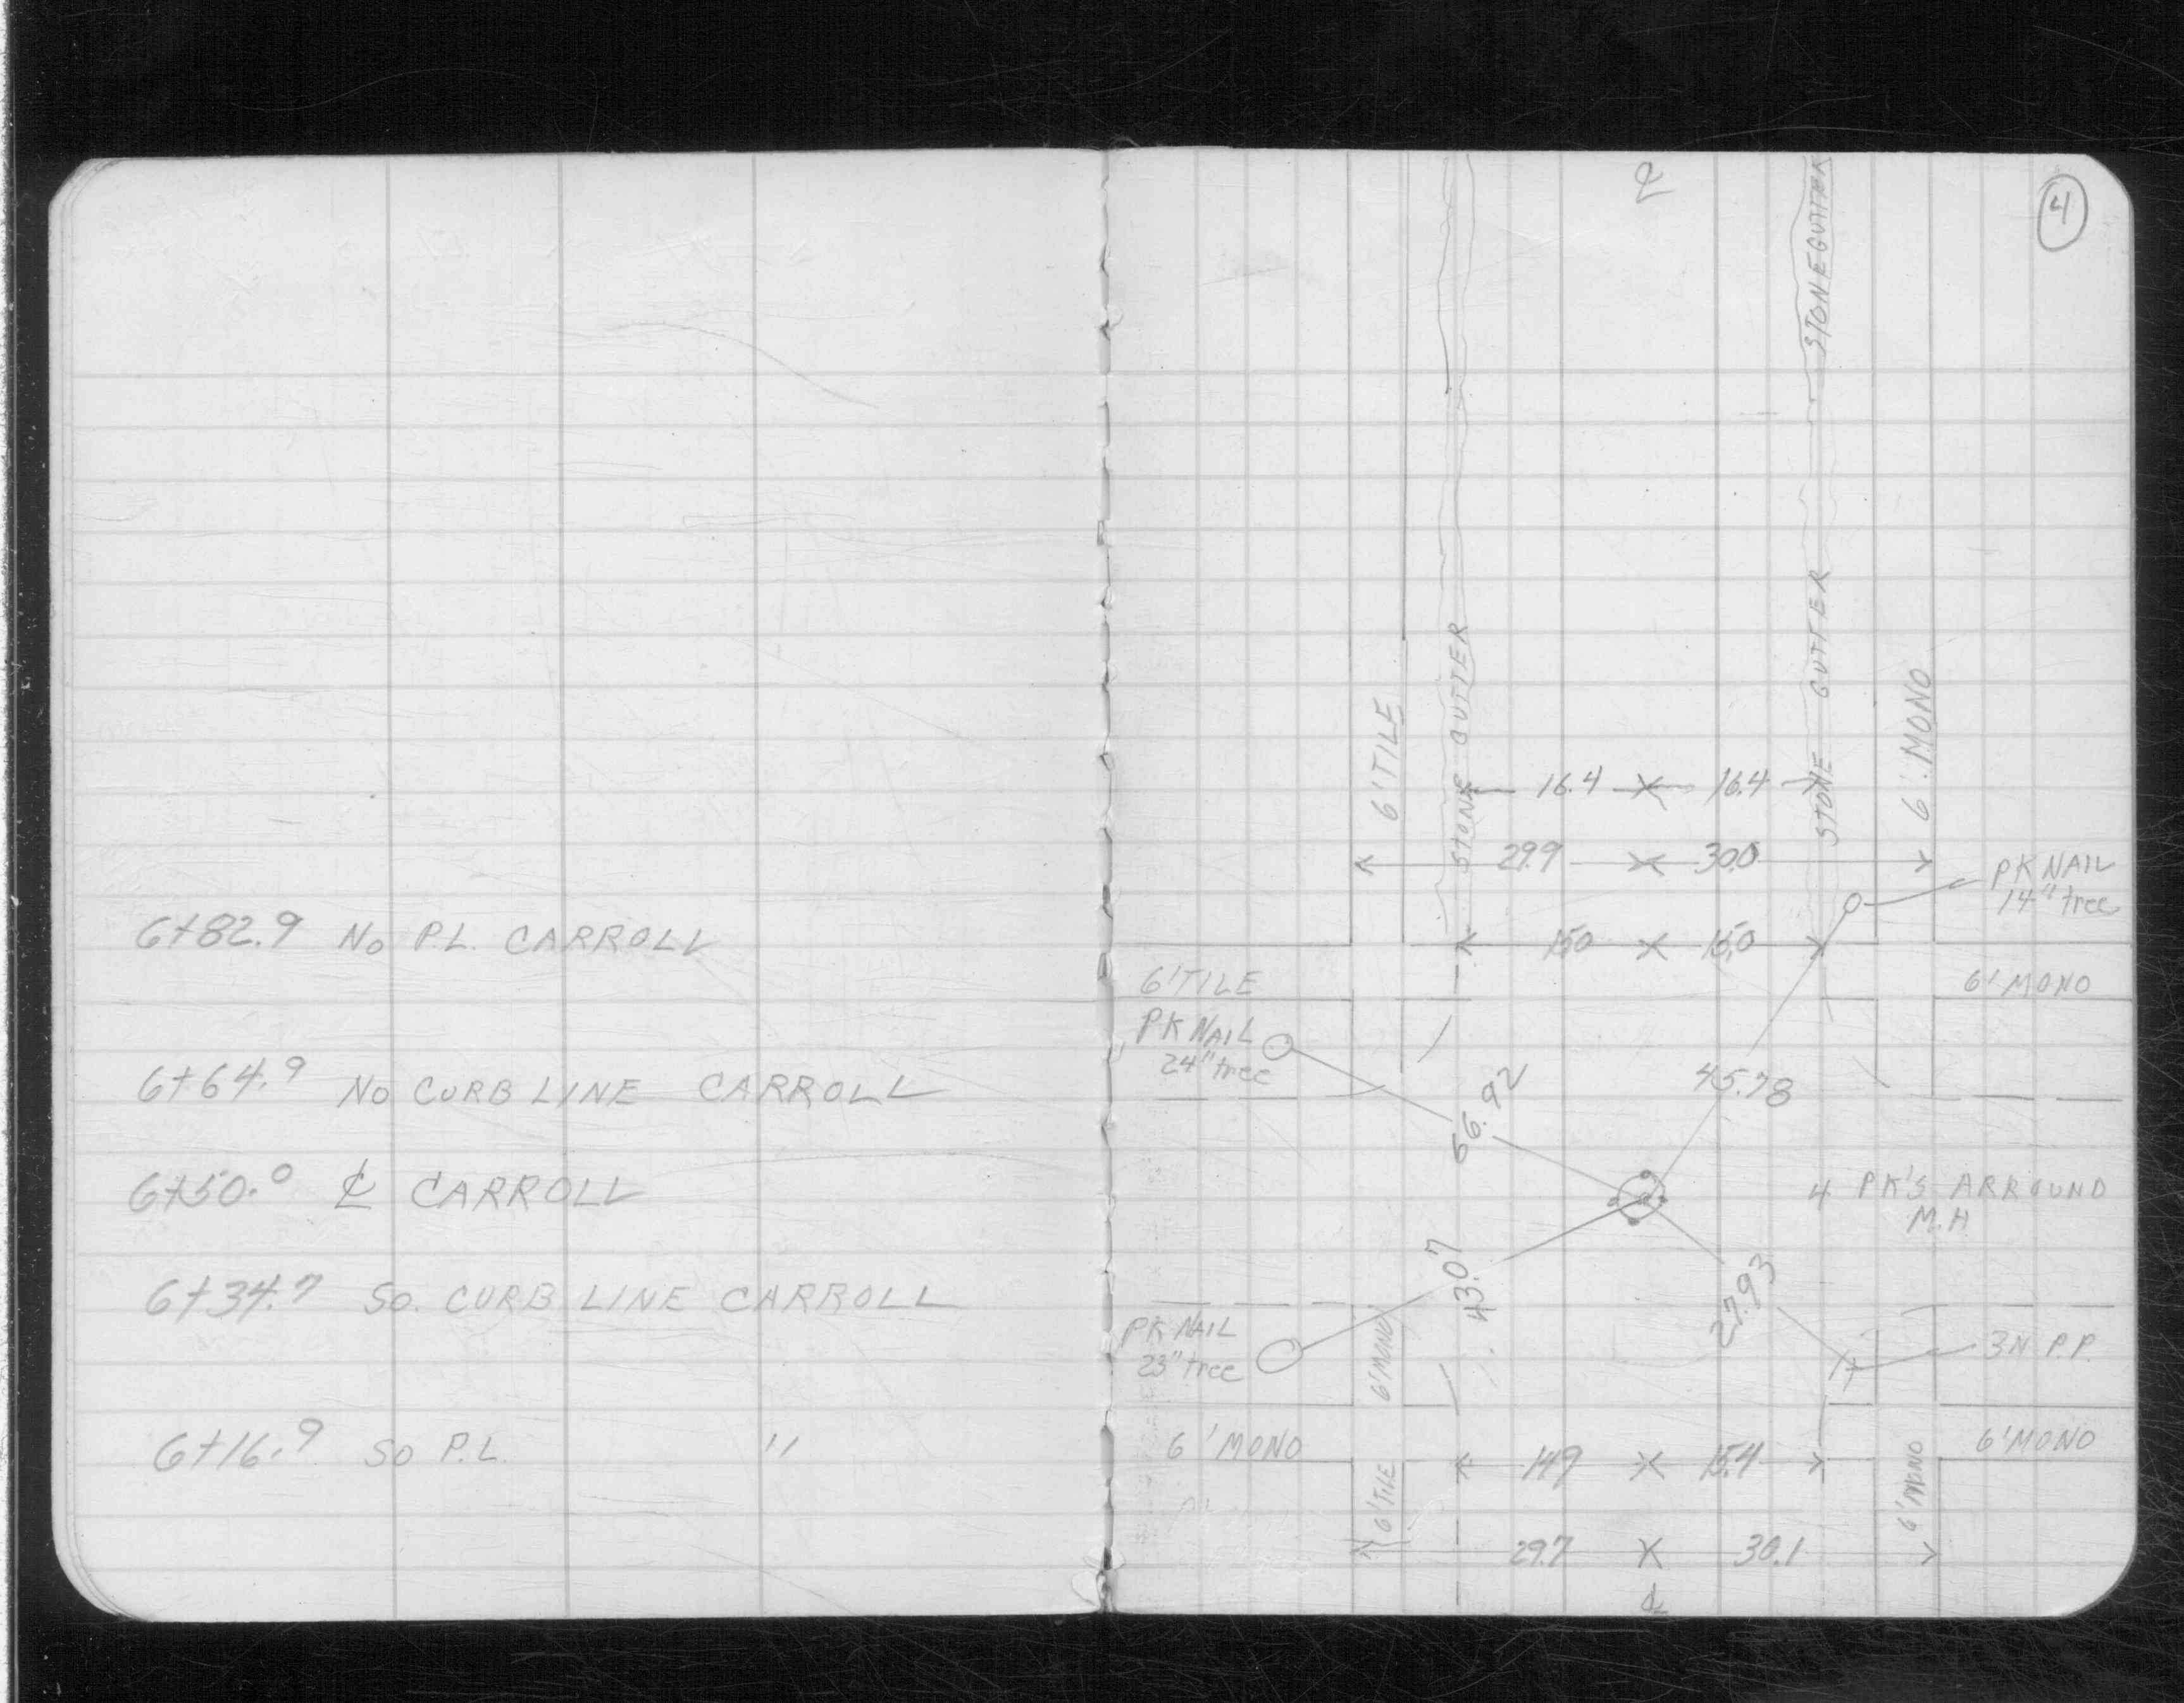 6+82.9 No P.L. CARROLL
6+64.9 No CURB LINE CARROLL
6+50.0 ℄ CARROLL
6+34.7 So. CURB LINE CARROLL
6+16.9 So P.L. "
4
℄
STONE GUTTER
STONE GUTTER
STONE GUTTER
6' TILE
6' MONO
16.4 16.4
29.9 30.0
PK NAIL
14" tree
15.0 15.0
6' TILE
6' MONO
PK NAIL
24" tree
45.78
4 PK'S ARROUND
M.H.
43.07
27.93
PK NAIL
23" tree
6' MONO
3N P.P.
6' MONO
6' MONO
14.9 15.4
6' TILE
6' MONO
29.7 30.1
℄